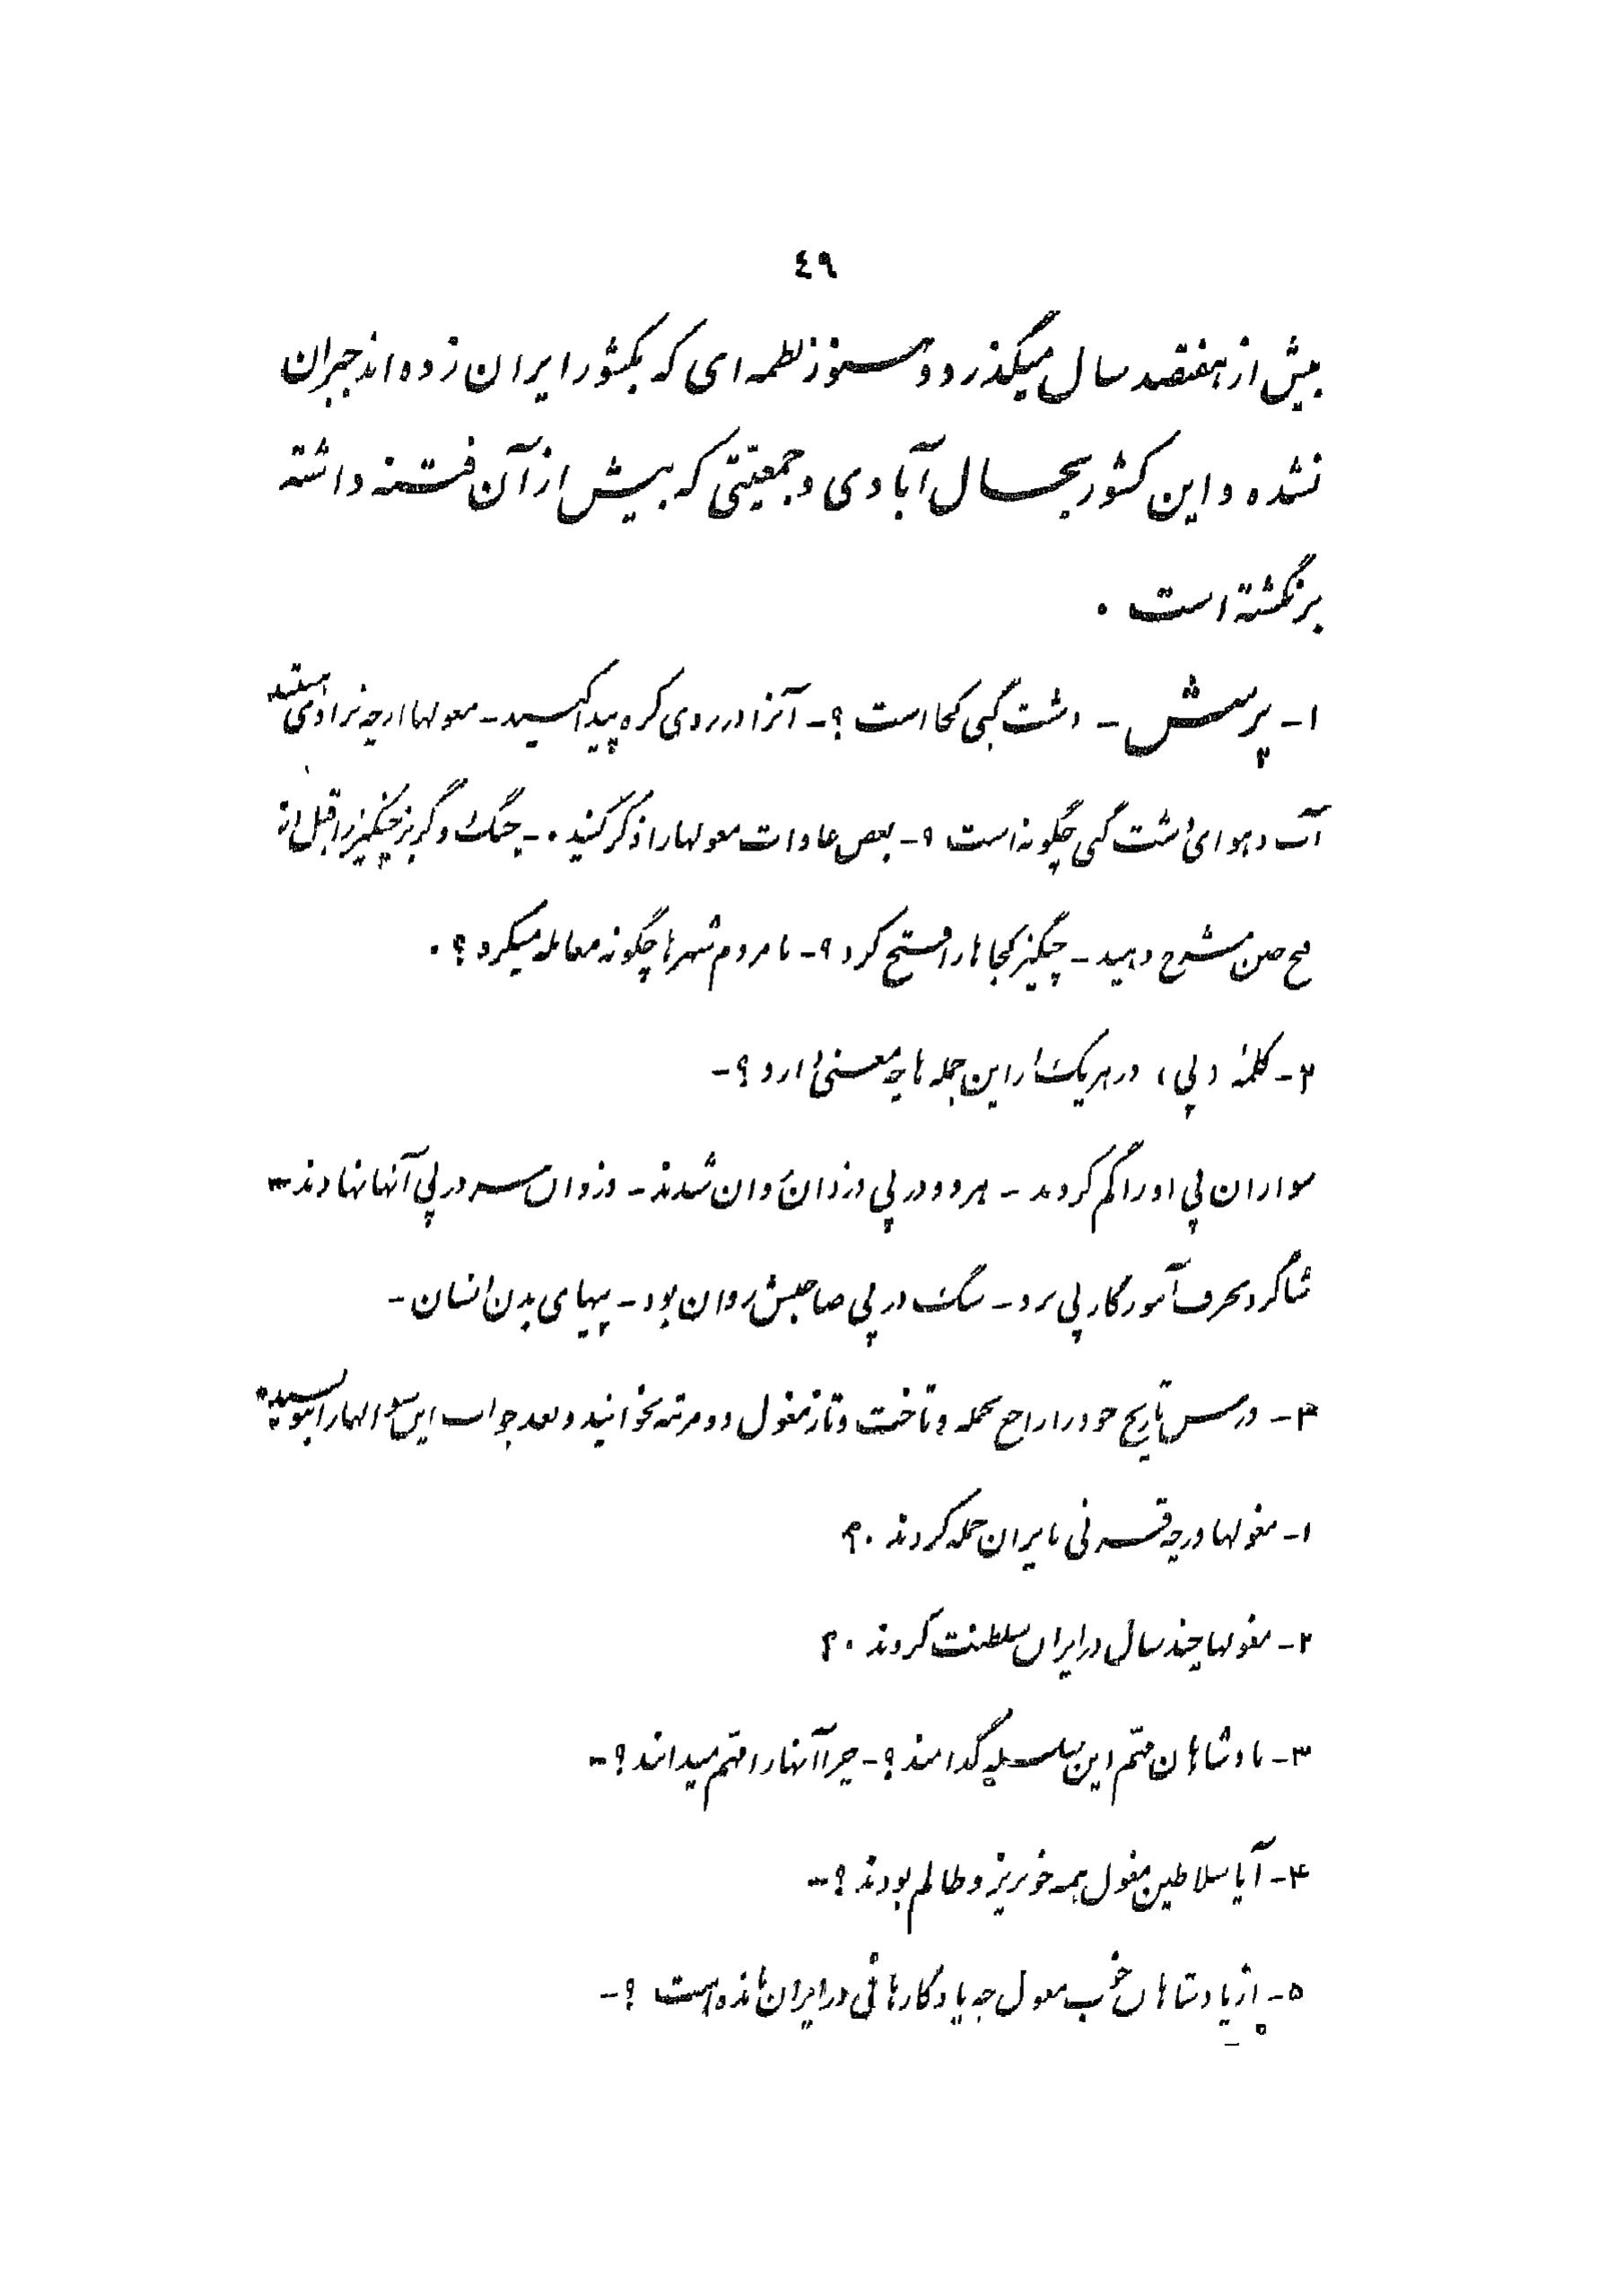 ٤٩
بیش از هفتصد سال میگذرد و هنوز لطمه‌ای که بکشور ایران زده‌اند جبران
نشده و این کشور بحال آبادی و جمعیتی که پیش از آن فتنه داشته
برنگشته است .
۱- پرسش - دشت گبی کجا است ؟- آنرا در روی کره پیدا کنید - مغولها از چه نژادی هستند
آب و هوای دشت گبی چگونه است ؟- بعض عادات مغولها را ذکر کنید .- جنگ و گریز چنگیز را قبل از
فتح چین شرح دهید - چنگیز کجاها را فتح کرد ؟- با مردم شهرها چگونه معامله میکرد ؟.
۲- کلمهٔ (پی) در هر یک از این جمله‌ها چه معنی دارد ؟-
سواران پی او را گم کردند - هر دو در پی دزدان روان شدند - دزدان سر در پی آنها نهادند -
شاگرد بحرف آموزگار پی برد - سگ در پی صاحبش روان بود - پیهای بدن انسان -
۳- درس تاریخ خود را راجع بحمله و تاخت و تاز مغول دو مرتبه بخوانید و بعد جواب این سؤالها را بنویسید .
۱- مغولها در چه قرنی بایران حمله کردند .؟
۲- مغولها چند سال در ایران سلطنت کردند .؟
۳- پادشاهان مهم این سلسله کدامند ؟- چرا آنها را مهم میدانند ؟-
۴- آیا سلاطین مغول همه خونریز و ظالم بودند ؟-
۵- از پادشاهان خوب مغول چه یادگارهائی در ایران مانده است ؟-